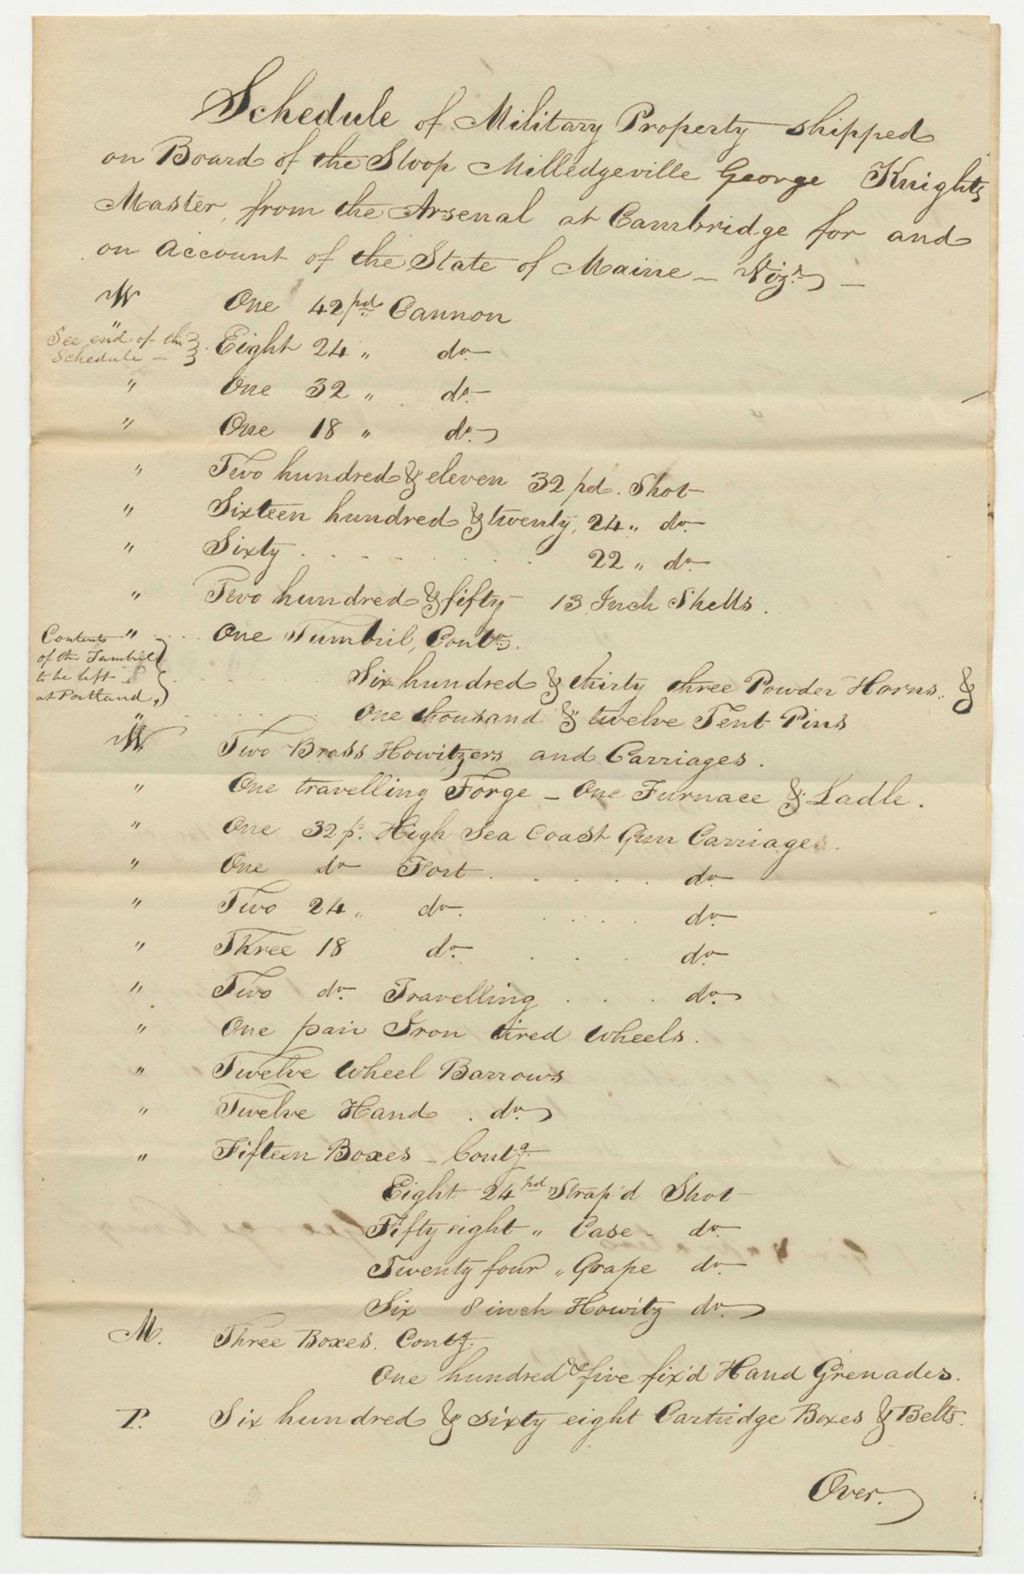 Schedule of Military Property shipped
on Board of the Sloop Milledgeville George Knights
Master, from the Arsenal at Cambridge for and
on account of the State of Maine — Viz.
W One 42 pd. Cannon
See end of the Schedule — " Eight 24 " do.
" One 32 " do.
" One 18 " do.
" Two hundred & eleven 32 pd. Shot
" Sixteen hundred & twenty, 24 " do.
" Sixty . . . . 22 " do.
" Two hundred & fifty 13 Inch Shells.
Contents " One Tumbril, Cont.
of the Tumbril
to be left
at Portland,
Six hundred & thirty three Powder Horns. &
" One thousand & twelve Tent Pins
W. Two Brass Howitzers and Carriages.
" One travelling Forge — One Furnace & Ladle.
" One 32 p. High Sea Coast Gun Carriage.
" One do Fort . . . . . do.
" Two 24 " do. . . . . do.
" Three 18 do. . . . do.
" Two do. Travelling . . . do.
" One pair Iron tired Wheels.
" Twelve Wheel Barrows
" Twelve Hand . do.
" Fifteen Boxes — Contg.
Eight 24 pd Strap'd Shot
Fifty eight " Case — do.
Twenty four " Grape do.
Six 8 inch Howitz do.
M. Three Boxes. Contg.
One hundred & five fix'd Hand Grenades.
P. Six hundred & sixty eight Cartridge Boxes & Belts.
Over.